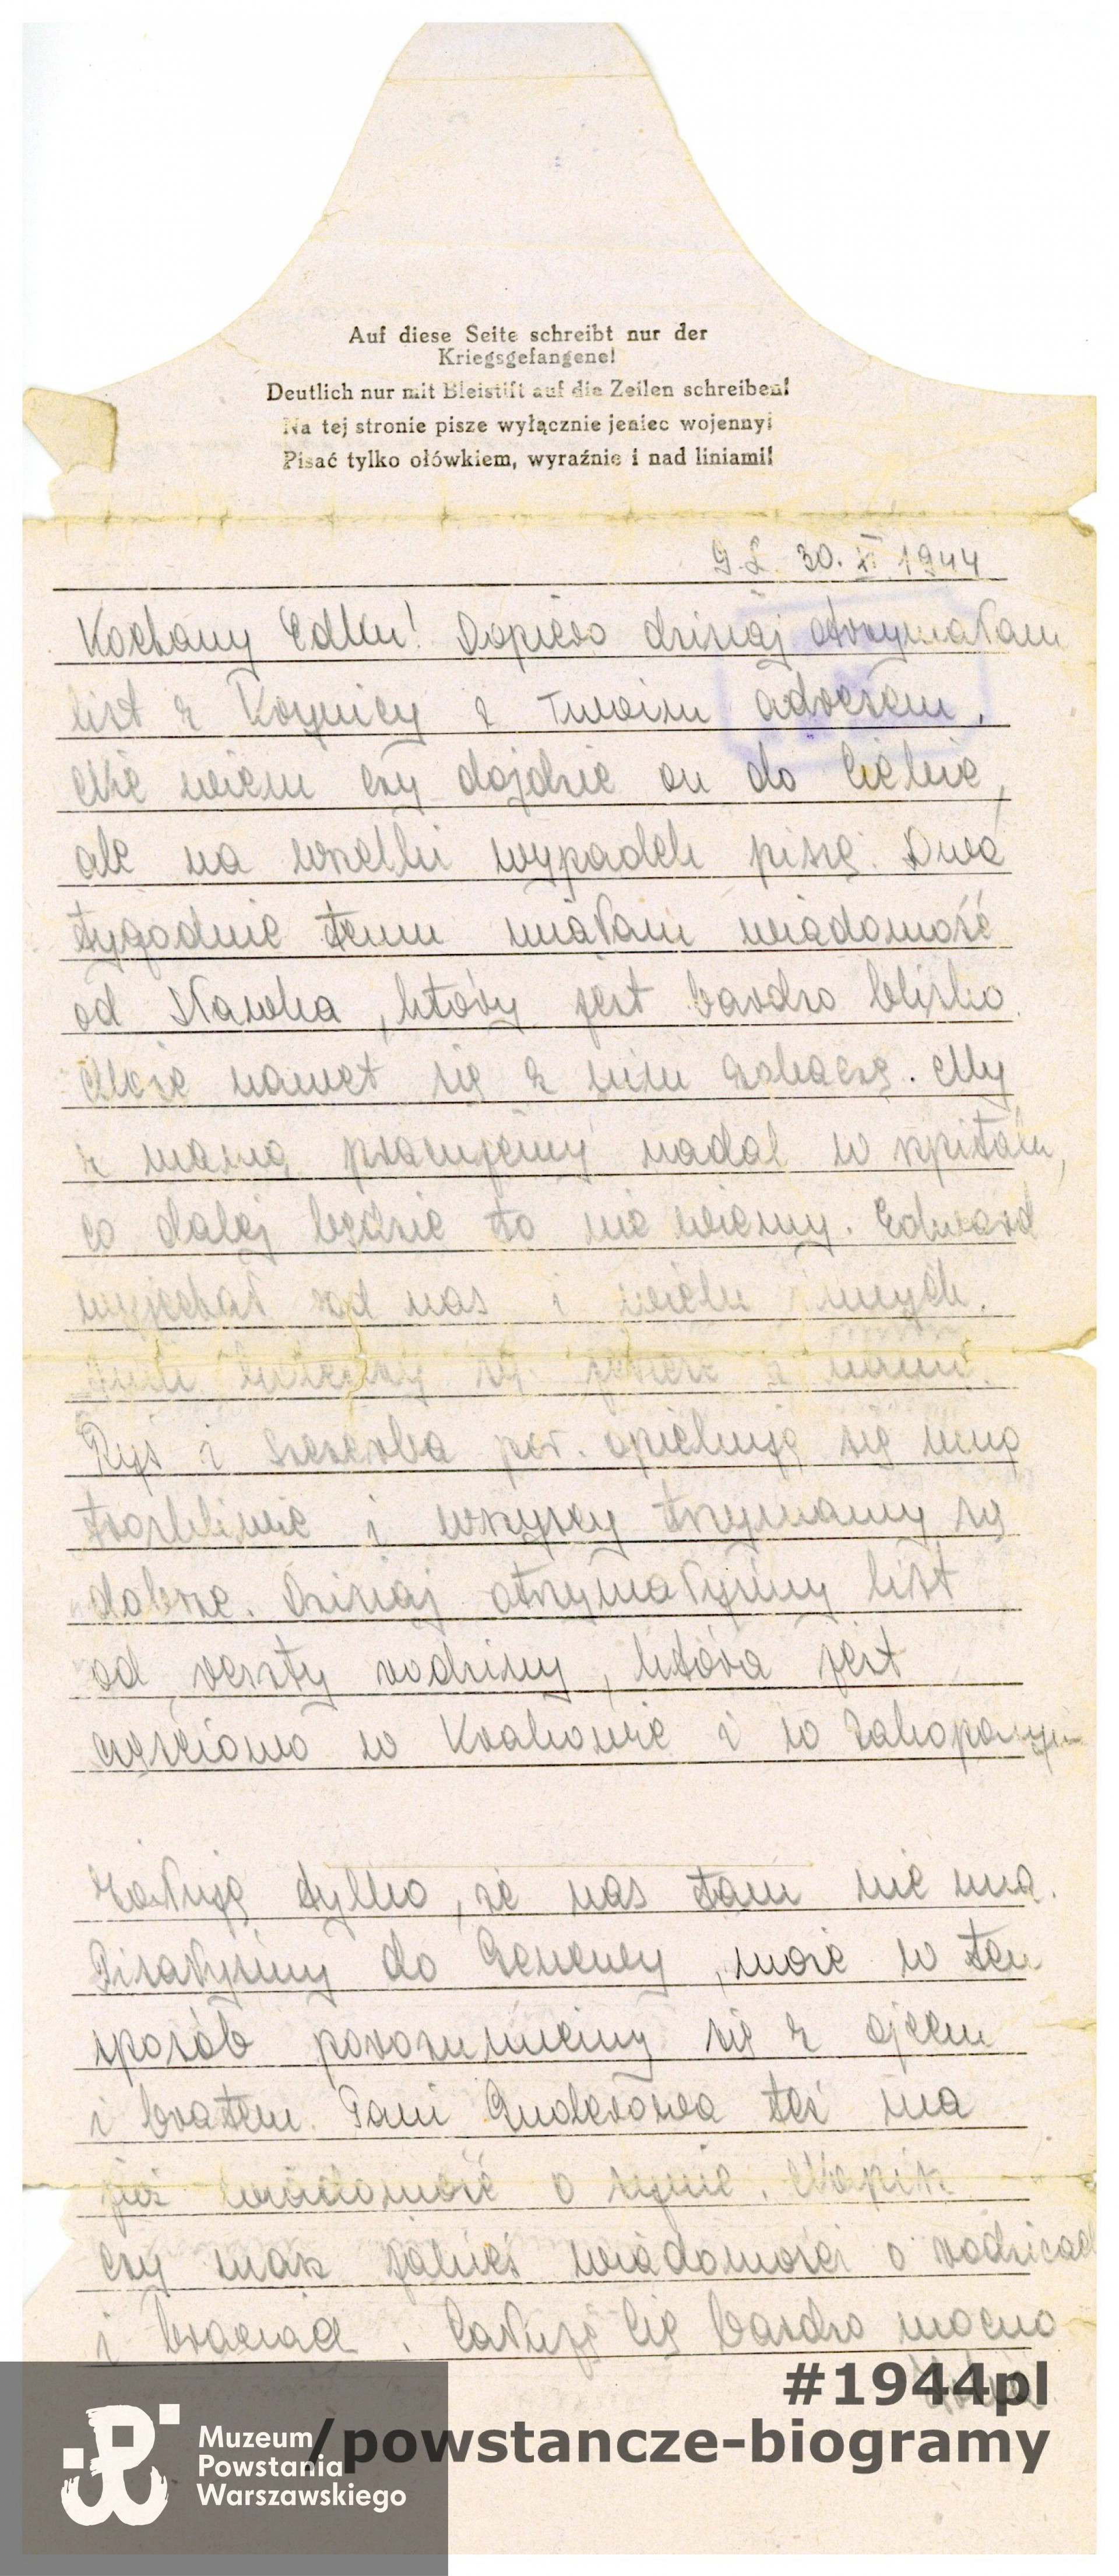 Auf diese Seite schreibt nur der
Kriegsgefangene!
Deutlich nur mit Bleistift auf die Zeilen schreiben!
Na tej stronie pisze wyłącznie jeniec wojenny!
Pisać tylko ołówkiem, wyraźnie i nad liniami!
30. XI 1944
Kochany Edku! Dopiero dzisiaj otrzymałam
list z Krynicy z Twoim adresem.
Nie wiem czy dojdzie on do Ciebie,
ale na wszelki wypadek piszę. Dwa
tygodnie temu miałam wiadomość
od Sławka, który jest bardzo blisko.
Może nawet się z nim zobaczę. My
z mamą pracujemy nadal w szpitalu,
co dalej będzie to nie wiemy. Edward
wyjechał od nas i wielu innych.
jeszcze z nami.
Ryś i Szczerba por. opiekują się mną
troskliwie i wszyscy trzymamy się
dobrze. Dzisiaj otrzymałyśmy list
od reszty rodziny, która jest
częściowo w Krakowie i w Zakopanym
Żałuję tylko, że nas tam nie ma.
Pisałyśmy do Genewy, może w ten
sposób porozumiemy się z ojcem
i bratem. Pani też ma
już wiadomość o synie. Napisz
czy masz jakieś wiadomości o rodzicach
i braciach. Całuję Cię bardzo mocno
#1944pl
/powstancze-biogramy
Muzeum
Powstania
Warszawskiego